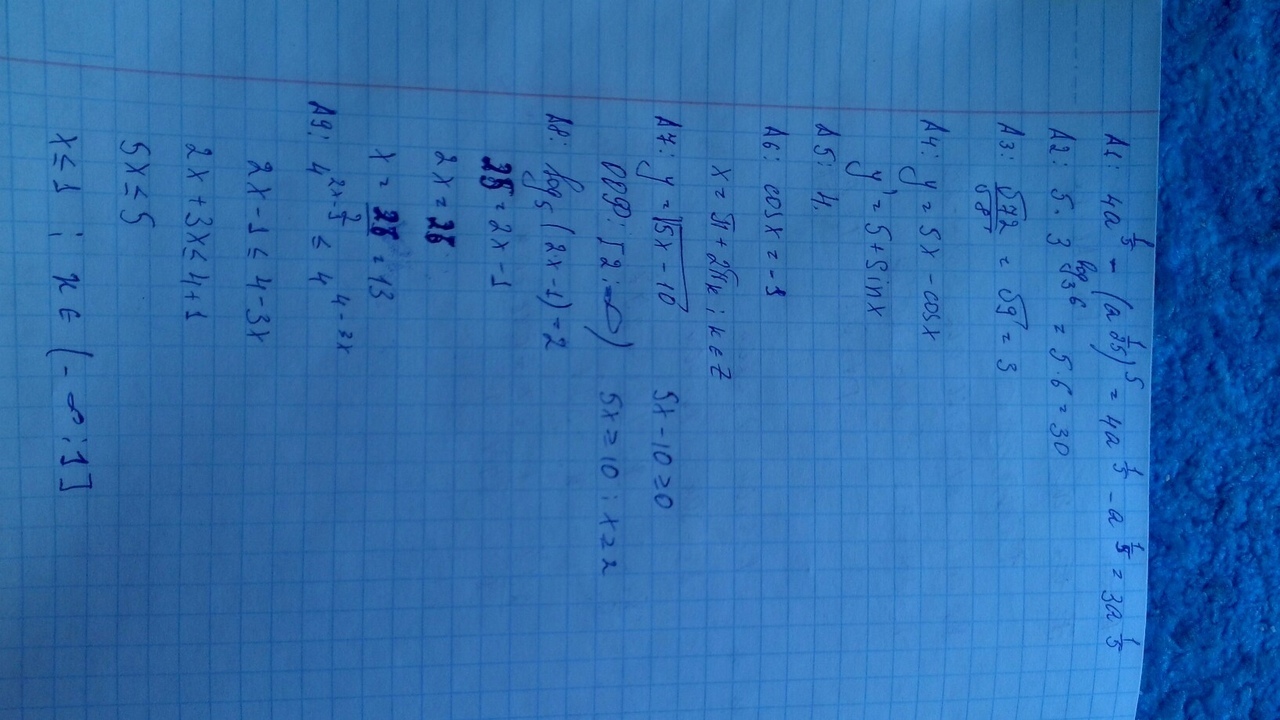 A1: 4a^{1/5} - (a^{1/25})^5 = 4a^{1/5} - a^{1/5} = 3a^{1/5}
A2: 5·3^{log_3 6} = 5·6 = 30
A3: √72/√8 = √9 = 3
A4: y = 5x - cosx
y' = 5 + sinx
A5: 4.
A6: cosx = -1
x = π + 2πk; k ∈ Z
A7: y = √5x - 10 5x - 10 ≥ 0
ООФ: [2; ∞) 5x ≥ 10; x ≥ 2
A8: log_5 (2x - 1) = 2
25 = 2x - 1
2x = 26
x = 26/2 = 13
A9: 4^{2x-1} ≤ 4^{4-3x}
2x - 1 ≤ 4 - 3x
2x + 3x ≤ 4 + 1
5x ≤ 5
x ≤ 1; x ∈ (-∞; 1]